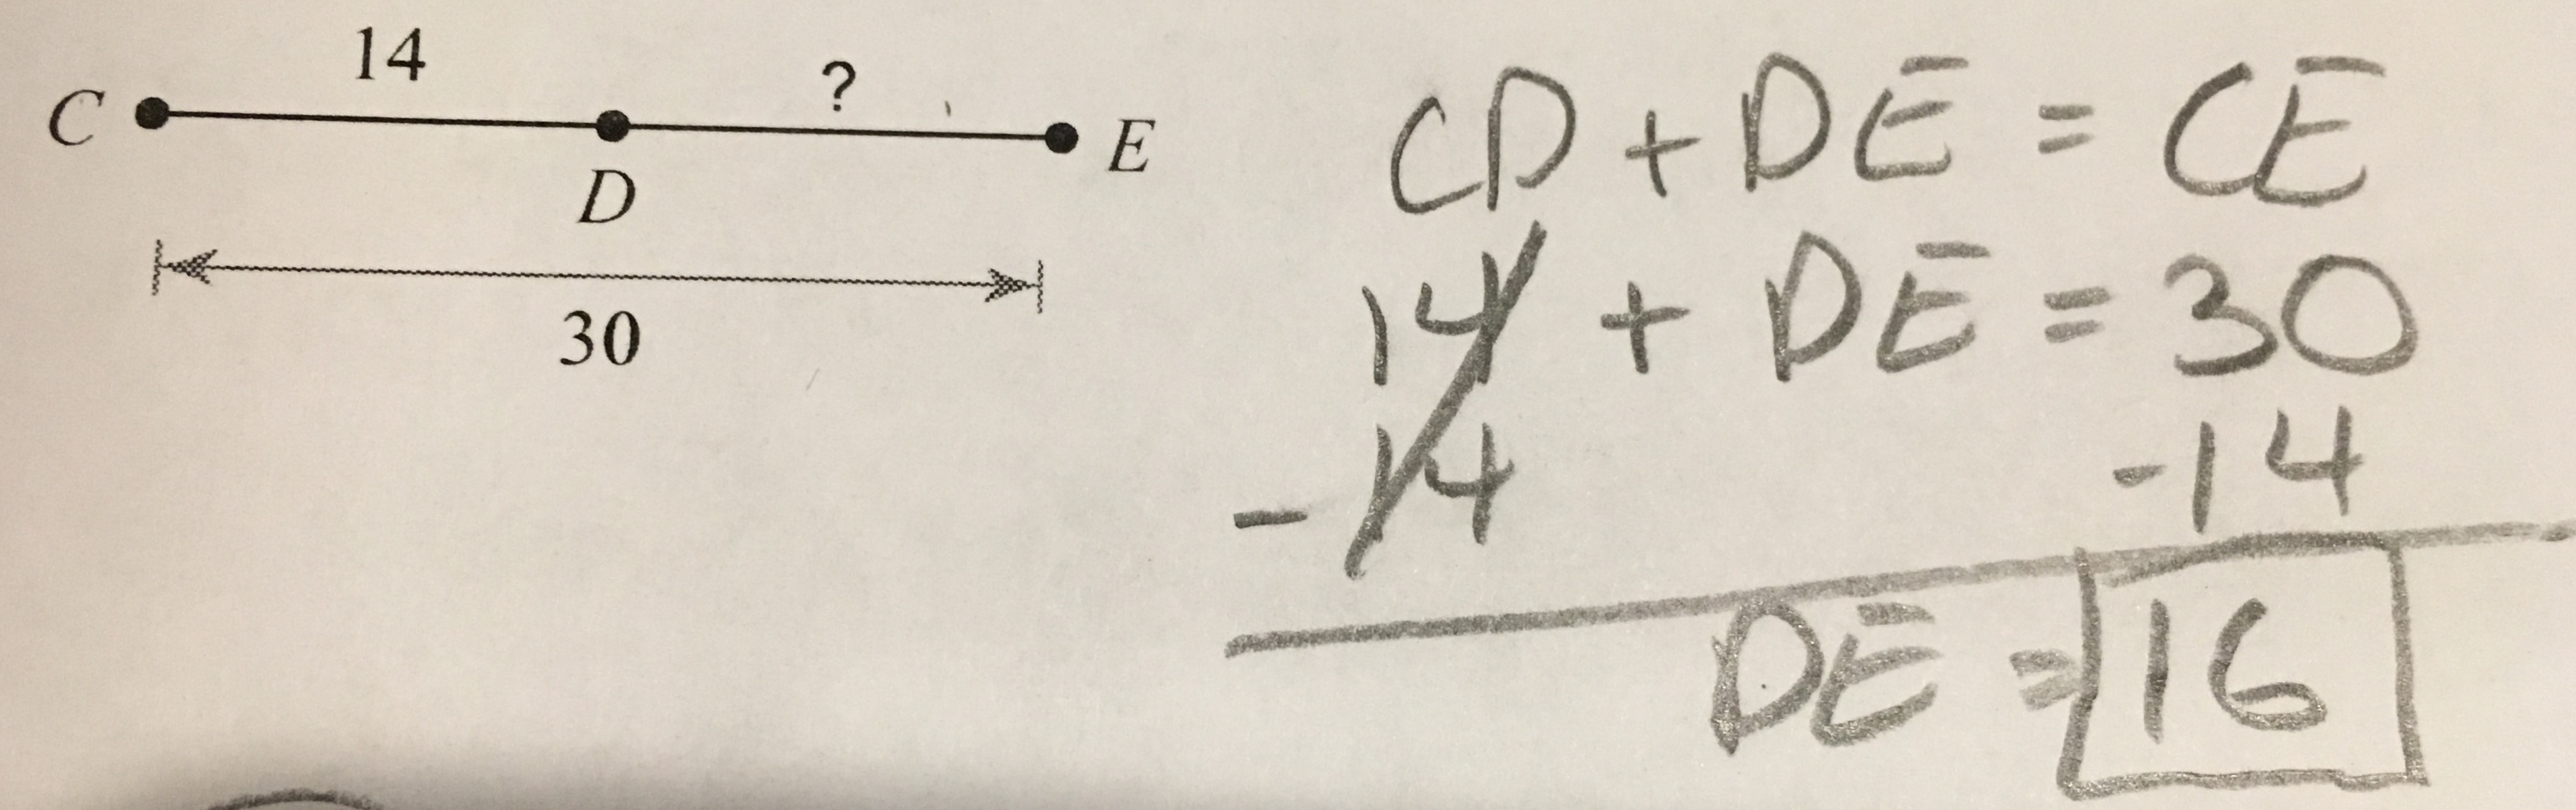 14
?
C
E
D
30
CD + DE = CE
14 + DE = 30
- 14 -14
DE = 16